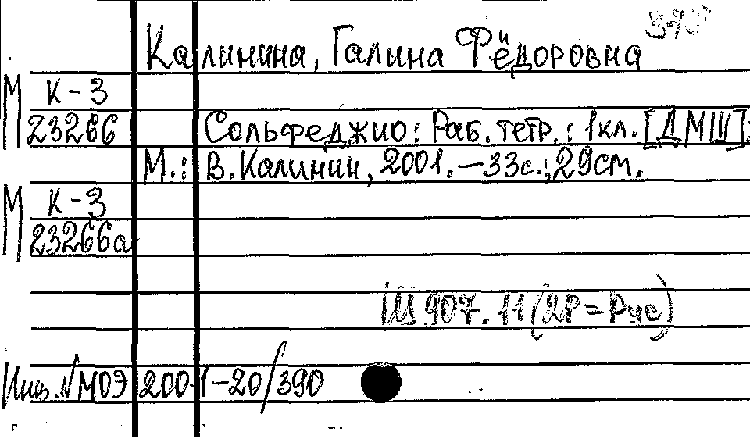 Калинина, Галина Фёдоровна
М К-3
23266 Сольфеджио: Раб. тетр.: 1кл. [ДМШ].
М.: В. Калинин, 2001. – 33с.; 29см.
М К-3
23266а
Ш 907.11(2Р=Рус)
Инв. № МОЭ 2001-20/390